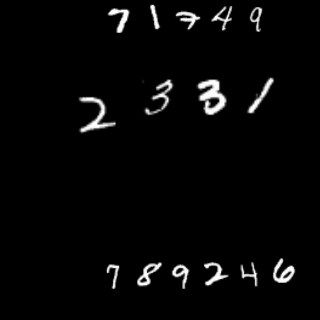 71749
2331
789246